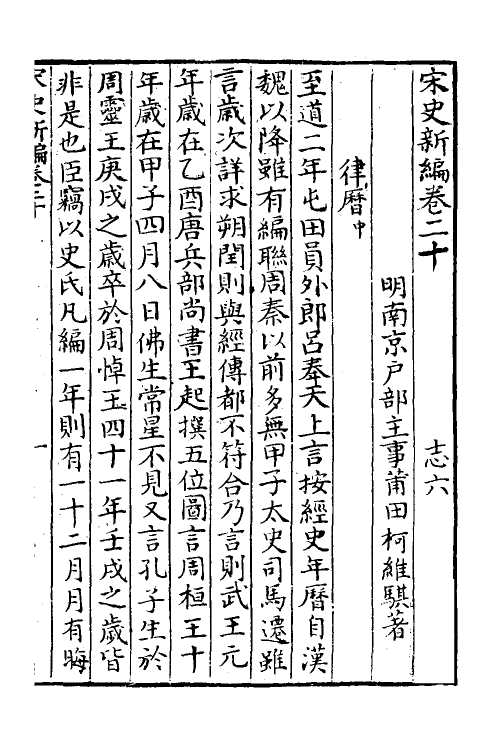 宋史新編卷二十　志六
明南京戶部主事莆田柯維騏著
律曆中
至道二年屯田員外郎呂奉天上言按經史年曆自漢
魏以降雖有編聯周秦以前多無甲子太史司馬遷雖
言歲次詳求朔閏則與經傳都不符合乃言則武王元
年歲在乙酉唐兵部尚書王起撰五位圖言周桓王十
年歲在甲子四月八日佛生常星不見又言孔子生於
周靈王庚戌之歲卒於周悼王四十一年壬戌之歲皆
非是也臣竊以史氏凡編一年則有一十二月月有晦
宋史新編卷二十　一